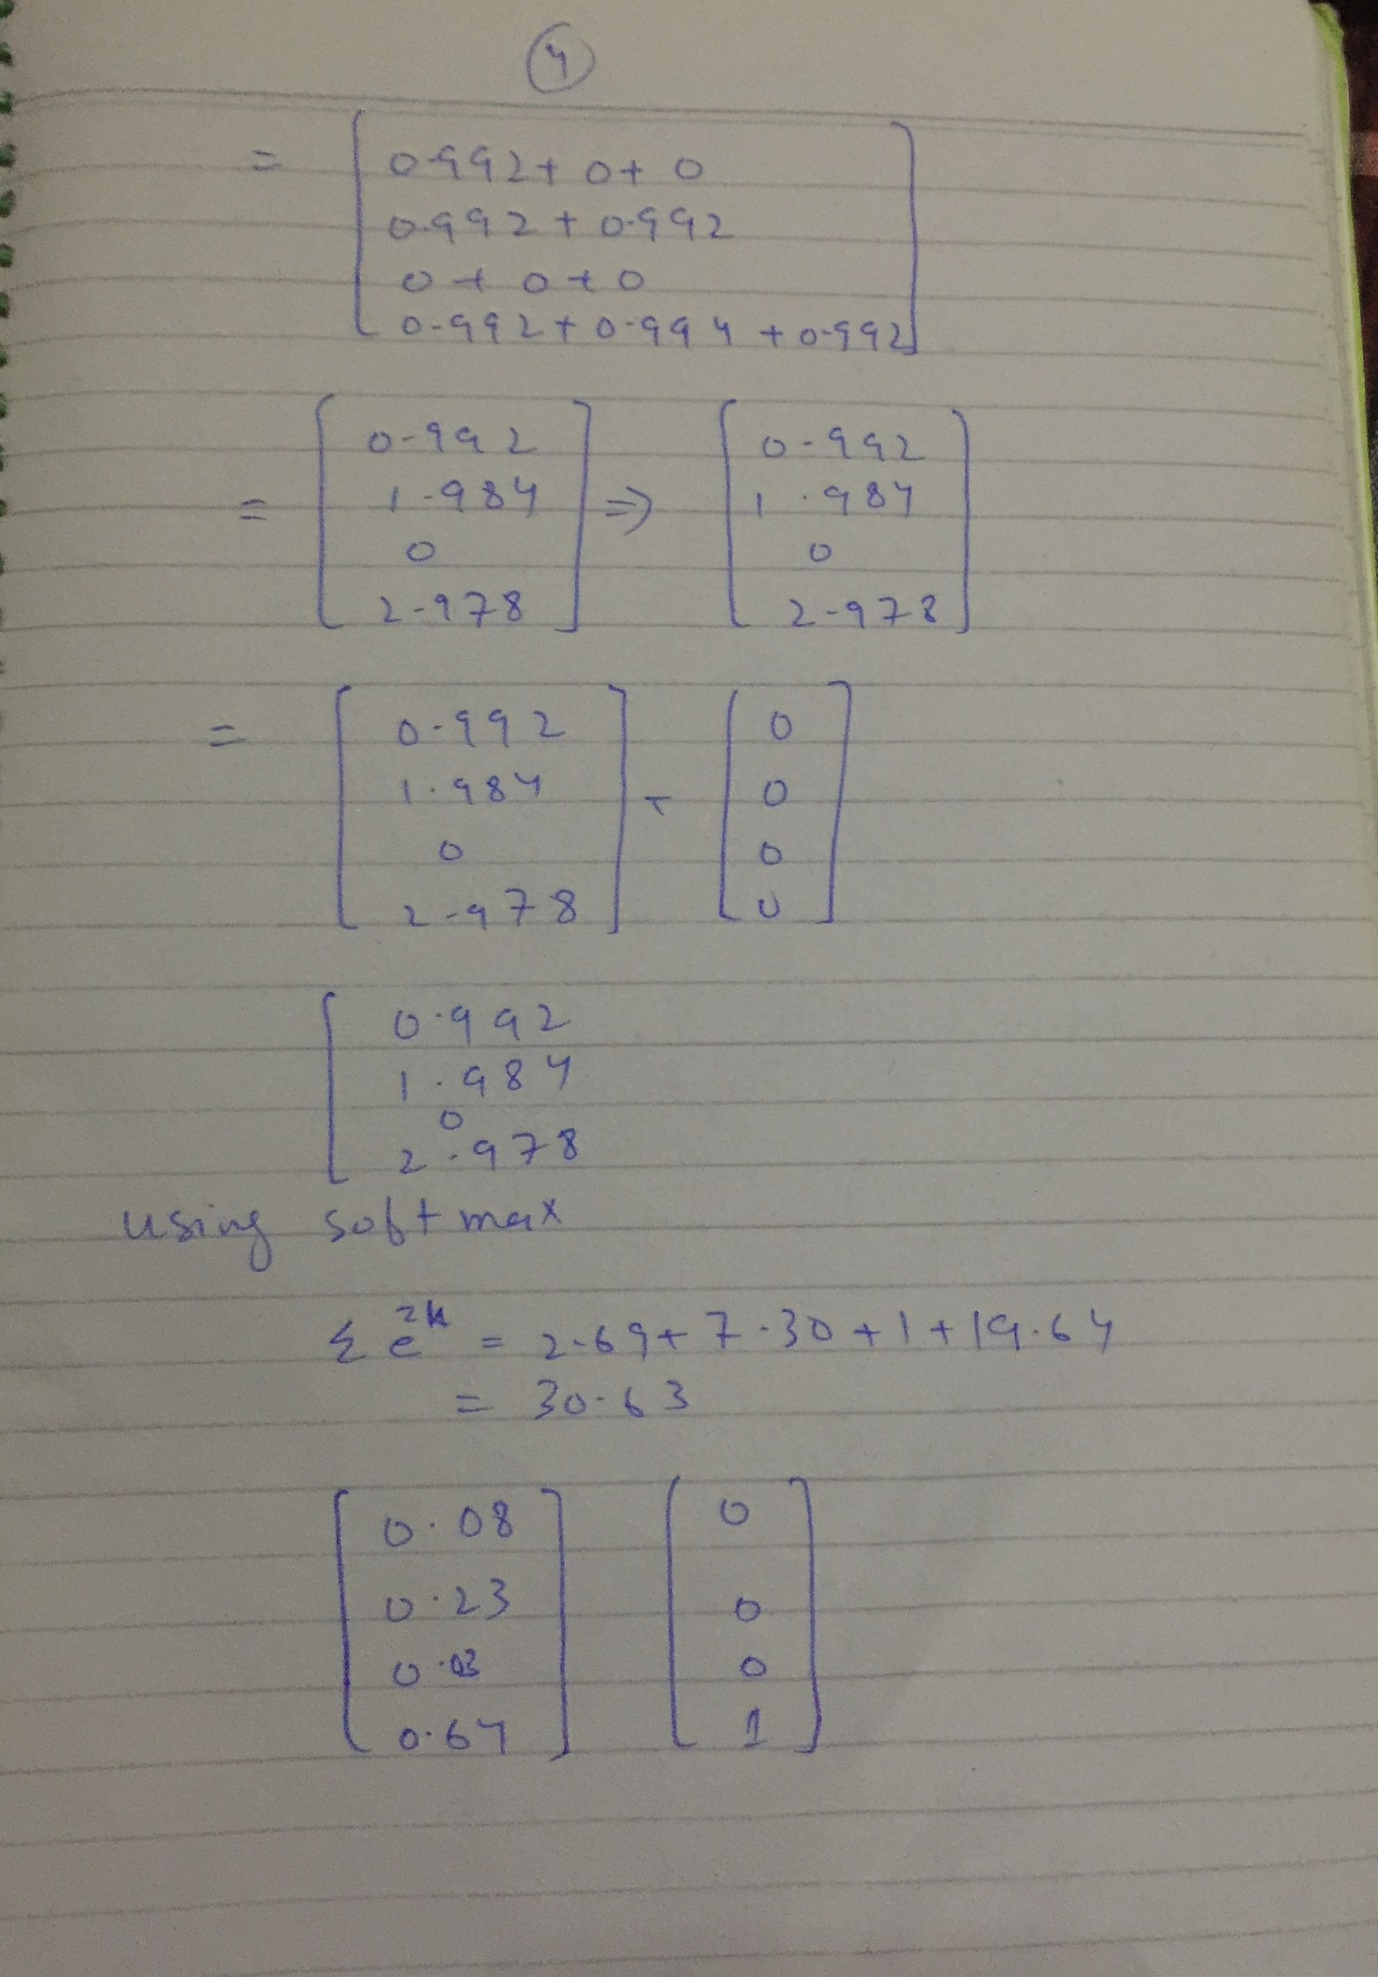 4
= [ 0.992 + 0 + 0 ]
0.992 + 0.992
0 + 0 + 0
0.992 + 0.994 + 0.992
= [ 0.992 ] ⇒ [ 0.992 ]
1.984 1.984
0 0
2.978 2.978
= [ 0.992 ] - [ 0 ]
1.984 0
0 0
2.978 0
[ 0.992
1.984
0
2.978
using softmax
Σ e^zk = 2.69 + 7.30 + 1 + 19.64
= 30.63
[ 0.08 ] [ 0 ]
0.23 0
0.03 0
0.64 1